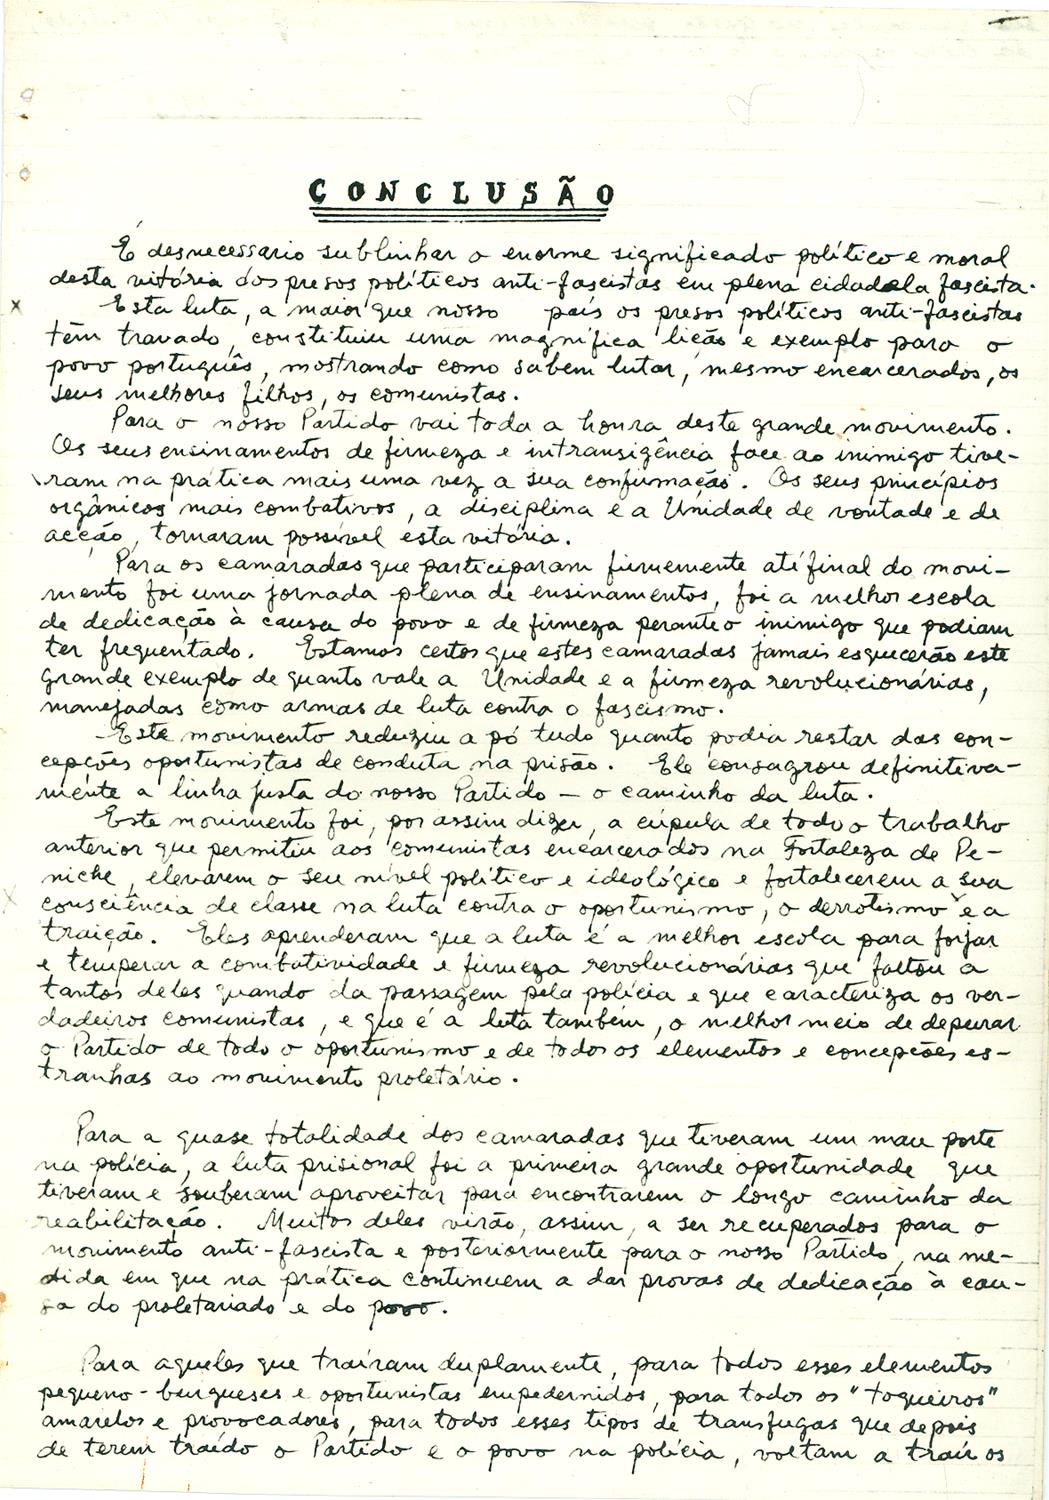 CONCLUSÃO
É desnecessario sublinhar o enorme significado político e moral
desta vitória dos presos políticos anti-fascistas em plena cidadela fascista.
Esta luta, a maior que nosso país os presos políticos anti-fascistas
têm travado, constituiu uma magnífica lição e exemplo para o
povo português, mostrando como sabem lutar, mesmo encarcerados, os
seus melhores filhos, os comunistas.
Para o nosso Partido vai toda a honra deste grande movimento.
Os seus ensinamentos de firmeza e intransigência face ao inimigo tive-
ram na prática mais uma vez a sua confirmação. Os seus princípios
orgânicos mais combativos, a disciplina e a Unidade de vontade e de
acção, tornaram possível esta vitória.
Para os camaradas que participaram firmemente até final do movi-
mento foi uma jornada plena de ensinamentos, foi a melhor escola
de dedicação à causa do povo e de firmeza perante o inimigo que podiam
ter frequentado. Estamos certos que estes camaradas jamais esquecerão este
grande exemplo de quanto vale a Unidade e a firmeza revolucionárias,
manejadas como armas de luta contra o fascismo.
Este movimento reduziu a pó tudo quanto podia restar das con-
cepções oportunistas de conduta na prisão. Ele consagrou definitiva-
mente a linha justa do nosso Partido — o caminho da luta.
Este movimento foi, por assim dizer, a cúpula de todo o trabalho
anterior que permitiu aos comunistas encarcerados na Fortaleza de Pe-
niche, elevarem o seu nível político e ideológico e fortalecerem a sua
consciência de classe na luta contra o oportunismo, o derrotismo e a
traição. Eles aprenderam que a luta é a melhor escola para forjar
e temperar a combatividade e firmeza revolucionárias que faltou a
tantos deles quando da passagem pela polícia e que caracteriza os ver-
dadeiros comunistas, e que é a luta também, o melhor meio de depurar
o Partido de todo o oportunismo e de todos os elementos e concepções es-
tranhas ao movimento proletário.
Para a quase totalidade dos camaradas que tiveram um mau porte
na polícia, a luta prisional foi a primeira grande oportunidade que
tiveram e souberam aproveitar para encontrarem o longo caminho da
reabilitação. Muitos deles virão, assim, a ser recuperados para o
movimento anti-fascista e posteriormente para o nosso Partido, na me-
dida em que na prática continuem a dar provas de dedicação à cau-
sa do proletariado e do povo.
Para aqueles que traíram duplamente, para todos esses elementos
pequeno-burgueses e oportunistas empedernidos, para todos os "toqueiros"
amarelos e provocadores, para todos esses tipos de transfugas que depois
de terem traído o Partido e o povo na polícia, voltam a trair os